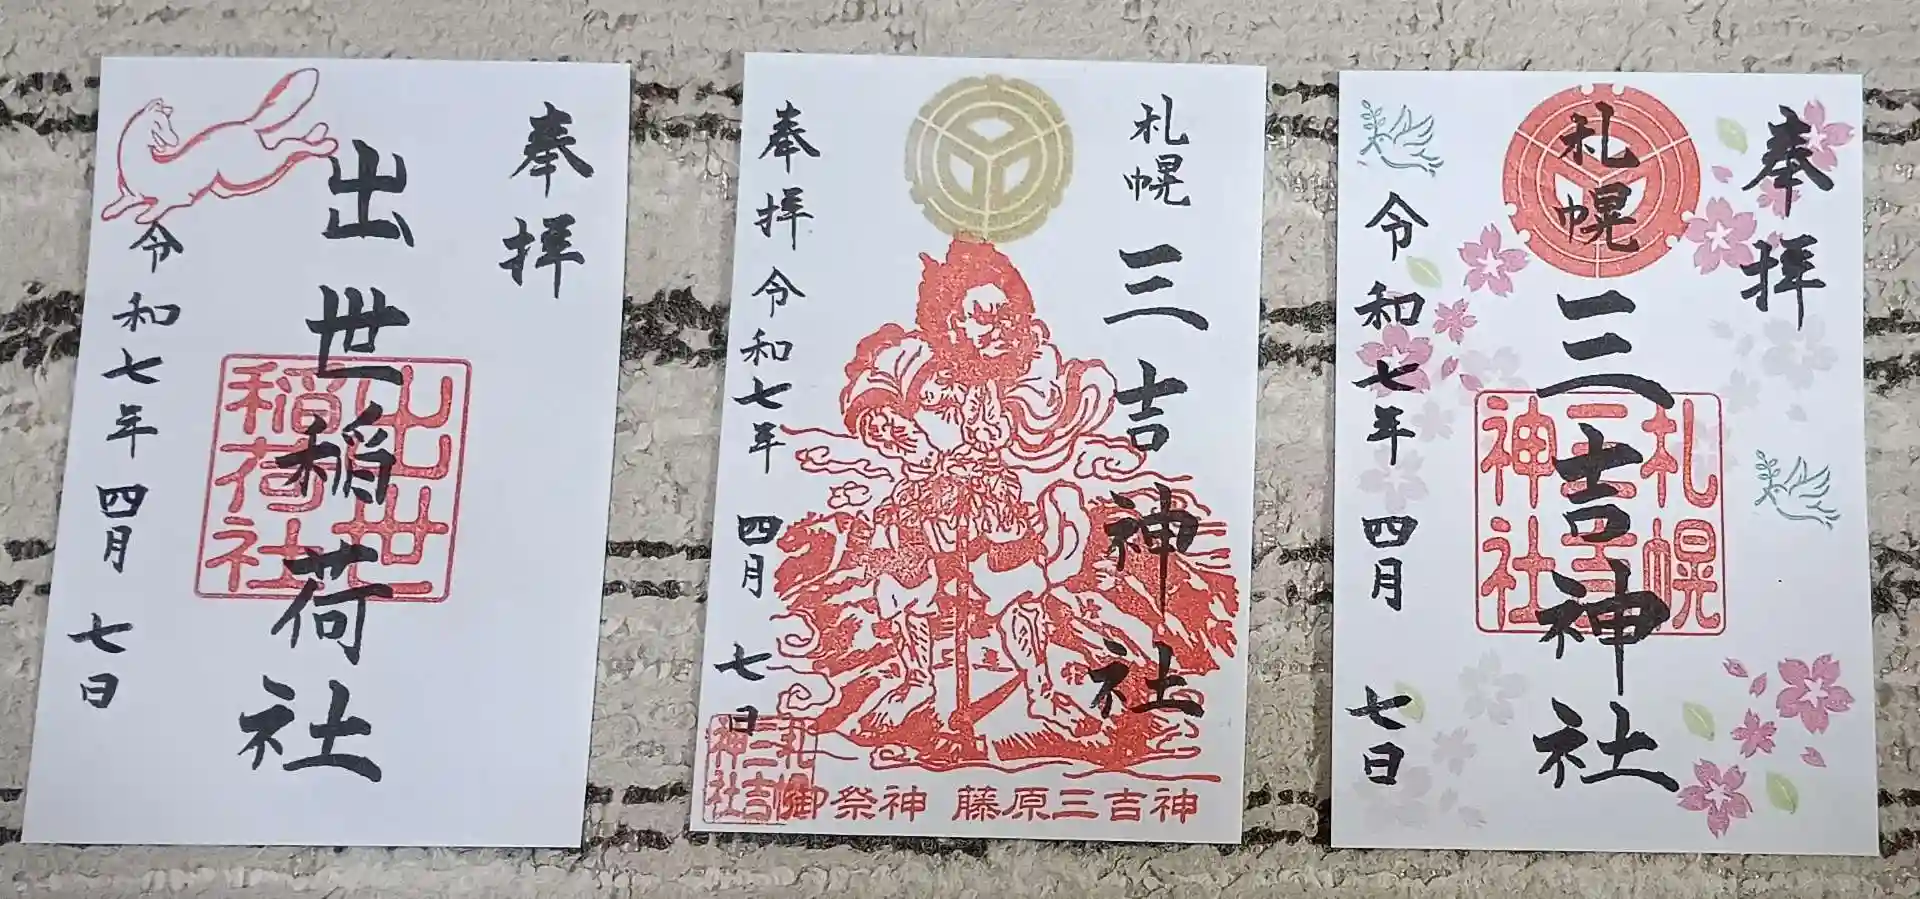 奉拝
出世稲荷社
令和七年四月七日
出世
稲荷社
札幌三吉神社
奉拝令和七年四月七日
札幌
三吉
神社
御祭神 藤原三吉神
奉拝
札幌三吉神社
令和七年四月七日
札幌
三吉
神社